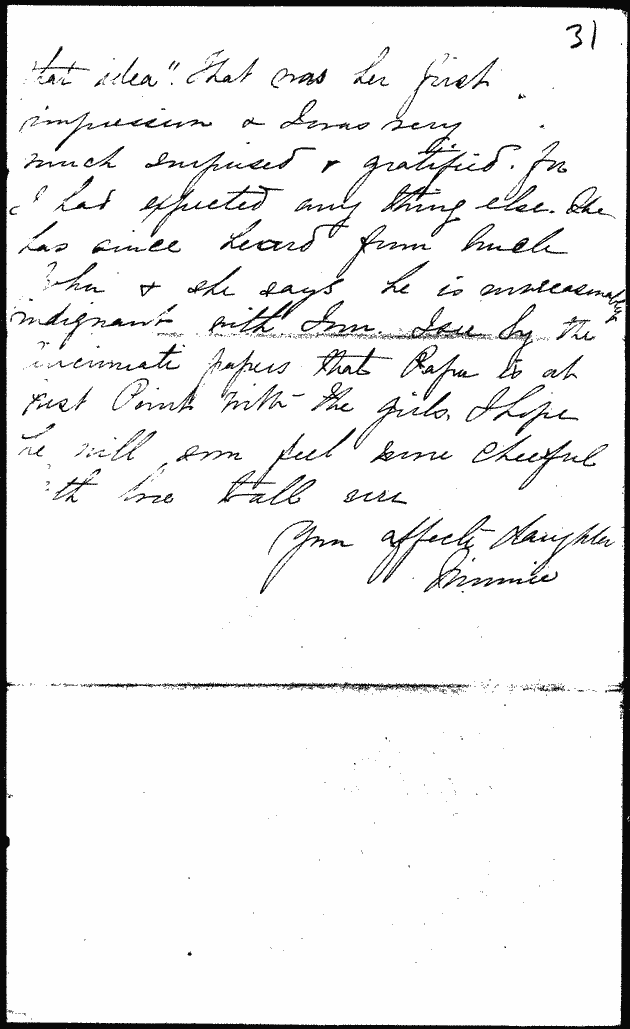 31
that idea". That was her first
impression & I was very
much surprised & gratified. for
I had expected any thing else. She
has since heard from Uncle
John & she says he is unreasonably
indignant with Tom. I see by the
Cincinnati papers that Papa is at
West Point with the girls. I hope
he will soon feel more cheerful
With love to all
Your affecte daughter
Minnie